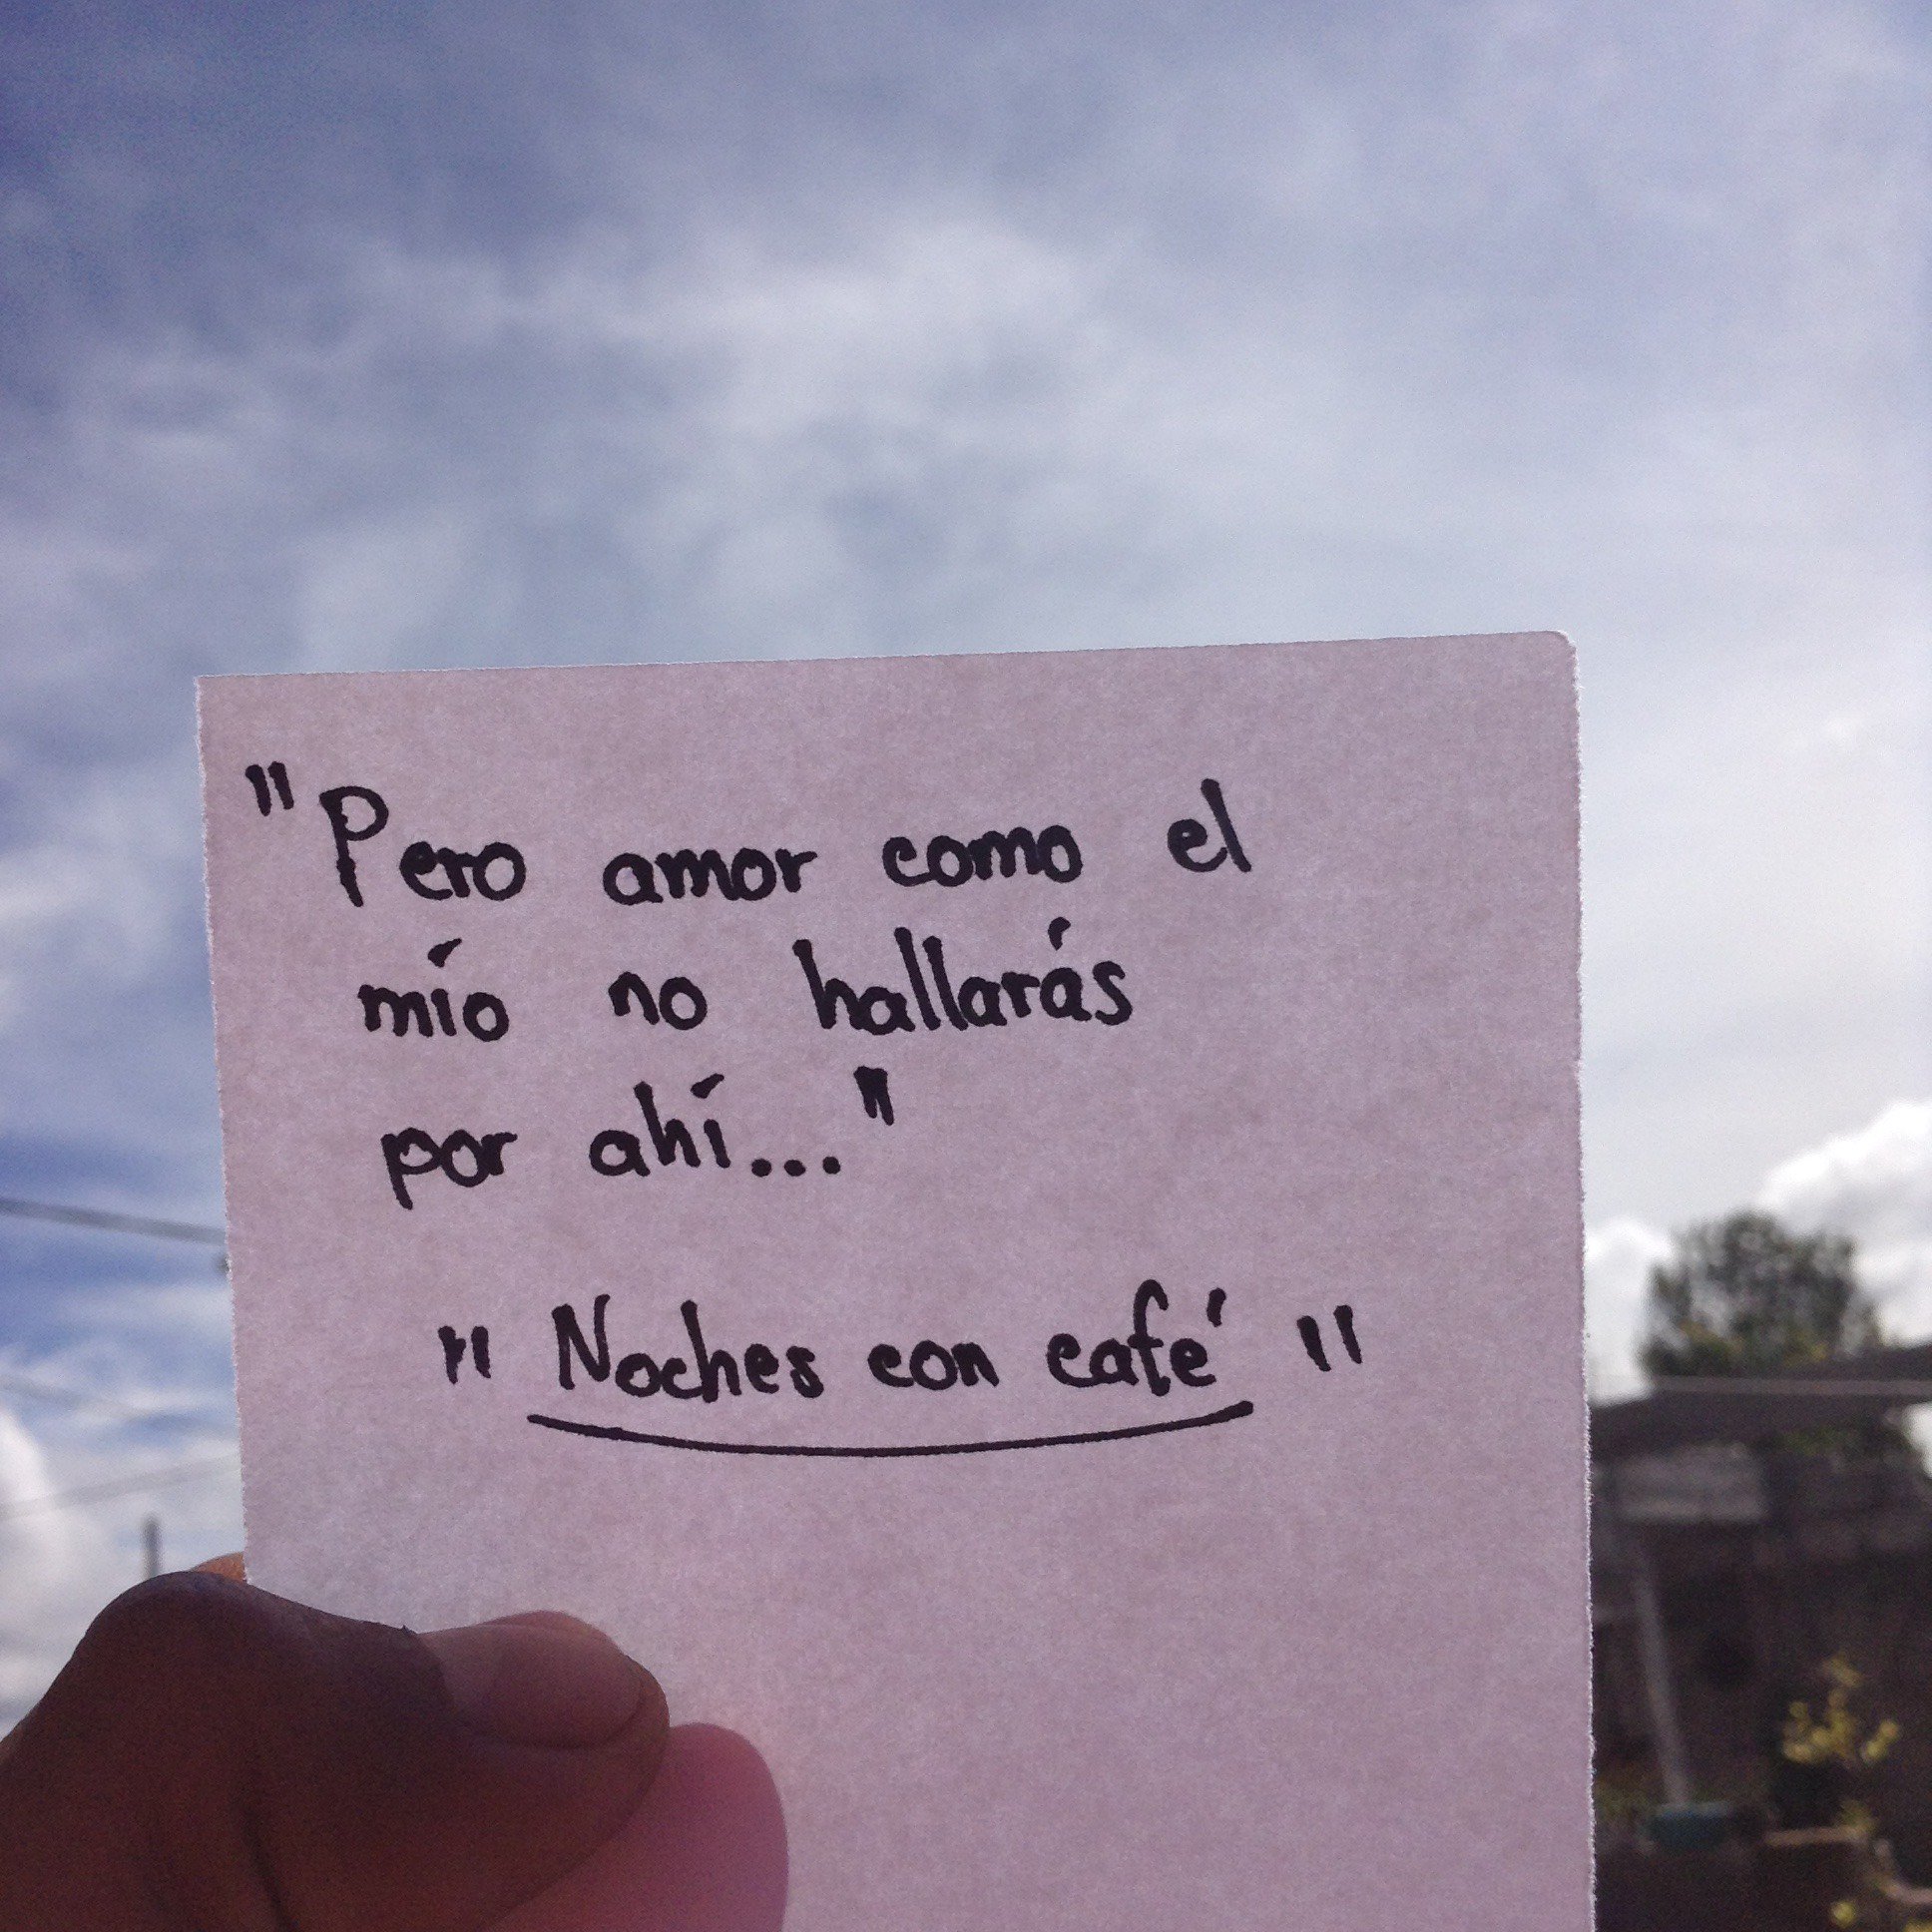 "Pero amor como el
mío no hallarás
por ahí..."
"Noches con café"